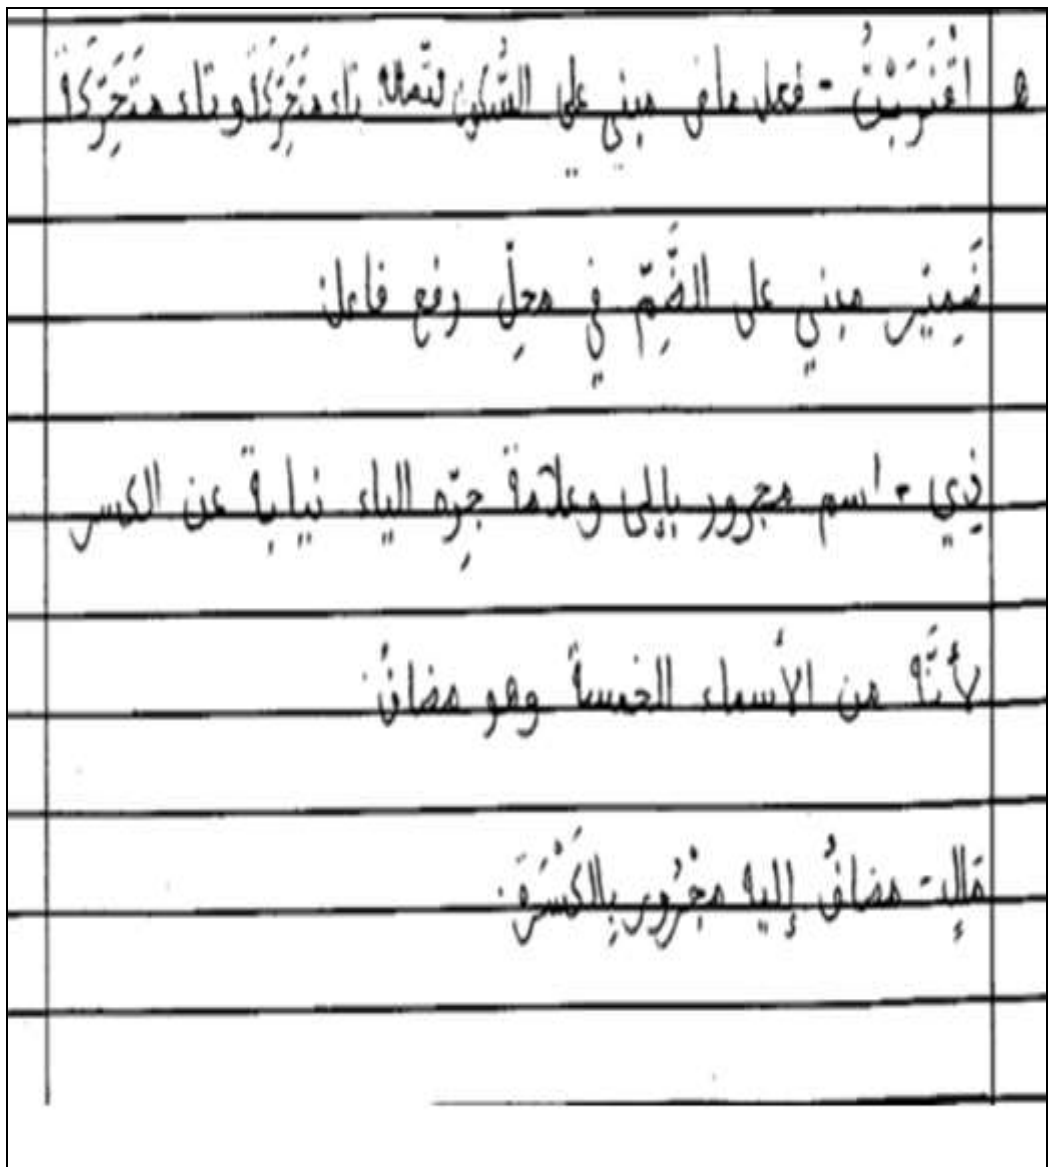 ه‍ اقْتَرَبْتُ - فعل ماض مبني علي السُّكون لتّصاله تاء متَحَرِّكَة وتاء متَحَرِّكَة
ضَمِير مبني على الضَّمِّ في محلِّ رفع فاعل
ذِي - اسم مجرور بإلى وعلامة جرِّه الياء نيابة عن الكسر
لأنَّهُ من الأسماء الخمسة وهو مضافٌ.
مَالٍ - مضافُ إليه مجْرُور بِالكَسْرَة.